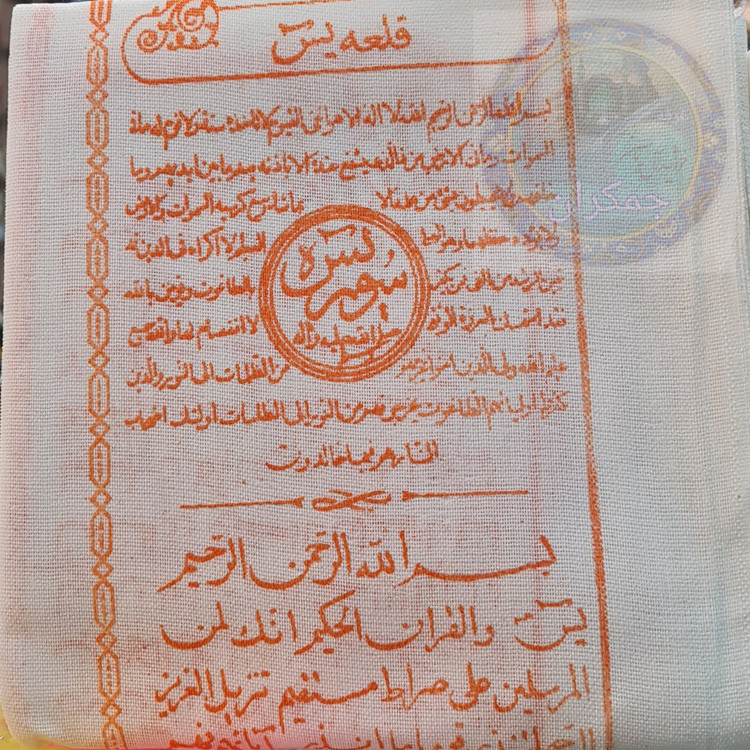 قلعه یس
بسم الله الرحمن الرحیم الله لا اله الا هو الحی القیوم لا تاخذه سنة و لا نوم له ما فی
السموات و ما فی الارض من ذا الذی یشفع عنده الا باذنه یعلم ما بین ایدیهم و ما
خلفهم و لا یحیطون بشیء من علمه الا بما شاء وسع کرسیه السموات و الارض
و لا یؤده حفظهما و هو العلی العظیم لا اکراه فی الدین قد
تبین الرشد من الغی فمن یکفر بالطاغوت و یؤمن بالله
فقد استمسک بالعروة الوثقی لا انفصام لها و الله سمیع
علیم الله ولی الذین امنوا یخرجهم من الظلمات الی النور و الذین
کفروا اولیائهم الطاغوت یخرجونهم من النور الی الظلمات اولئک اصحاب
النار هم فیها خالدون
سوره یس
صلی الله علیه و آله
جمکران
بسم الله الرحمن الرحیم
یس والقران الحکیم انک لمن
المرسلین علی صراط مستقیم تنزیل العزیز
الرحیم لتنذر قوما ما انذر آبائهم فهم